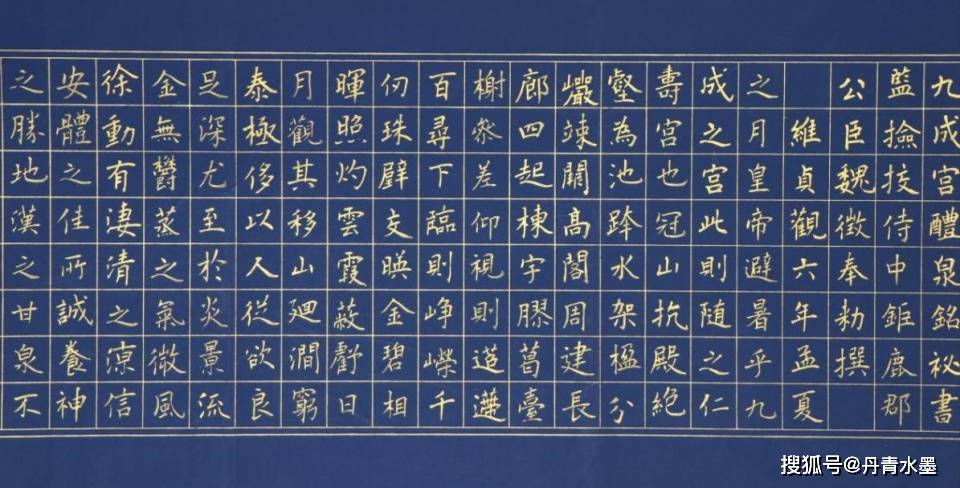 九成宫醴泉銘祕書
藍撿挍侍中鉅鹿郡
公臣魏徵奉勑撰
維貞觀六年孟夏
之月皇帝避暑乎九
成之宫此則随之仁
壽宫也冠山抗殿絶
壑為池跨水架楹分
巖竦闕高閣周建長
廊四起棟宇膠葛臺
榭叅差仰視則迢遰
百尋下臨則崢嶸千
仞珠壁交暎金碧相
暉照灼雲霞蔽虧日
月觀其移山廻澗窮
泰極侈以人從欲良
足深尤至於炎景流
金無欝蒸之氣微風
徐動有淒清之凉信
安體之佳所誠養神
之勝地漢之甘泉不
搜狐号@丹青水墨